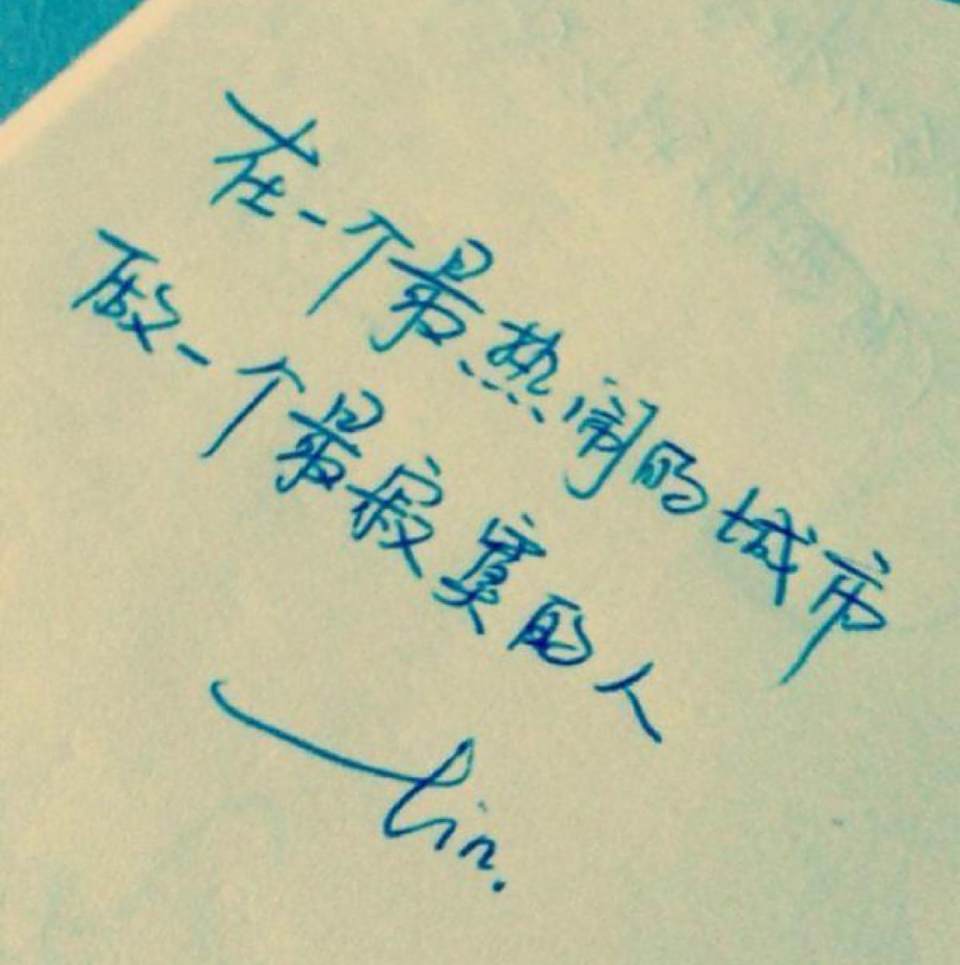 在一个最热闹的城市
做一个最寂寞的人
——Lin.